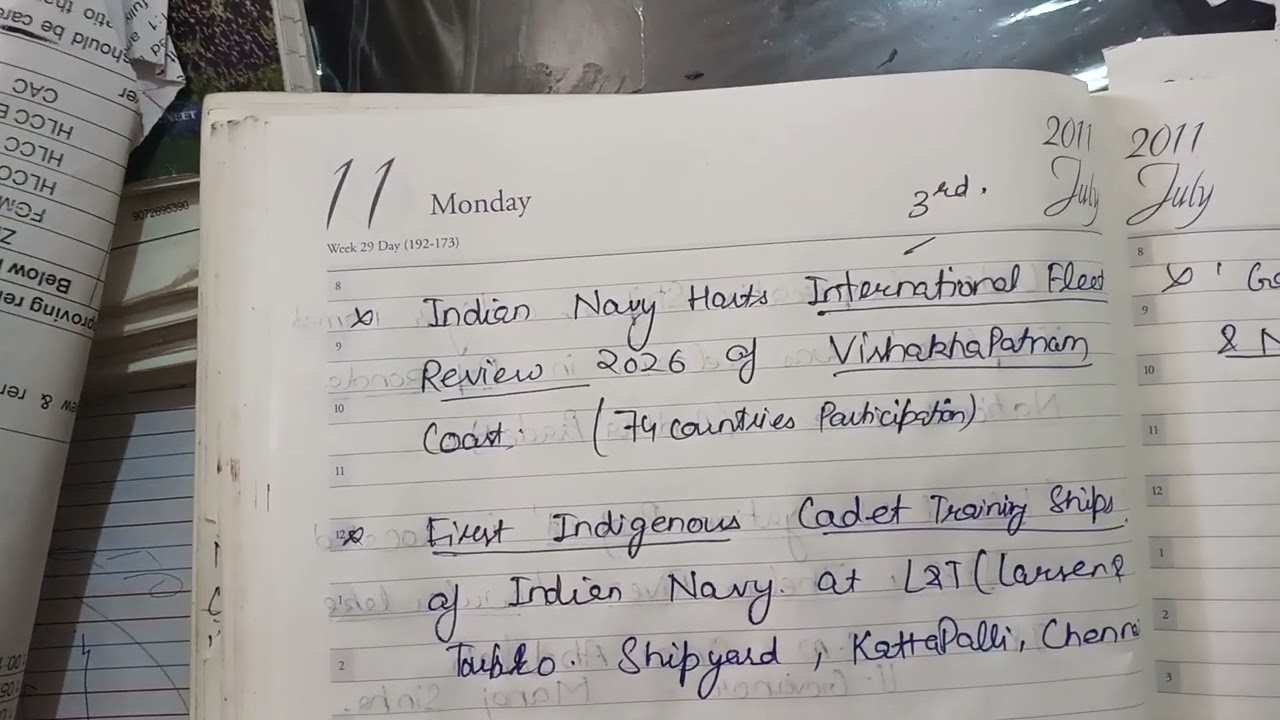 11 Monday
3rd.
2011
July
Week 29 Day (192-173)
8
Indian Navy Hosts International Fleet
9
Review 2026 of VishakhaPatnam
10
Coast. (74 countries Participation)
11
12
First Indigenous Cadet Training Ships.
1
of Indian Navy. at L&T (Larsen &
2
Toubro. Shipyard, KattaPalli, Chennai
2011
July
8
9
& N
10
11
12
1
2
3
should be care
CAC
HLCC
HLCC
Below
proving
ew & ren
NEET
9072695390